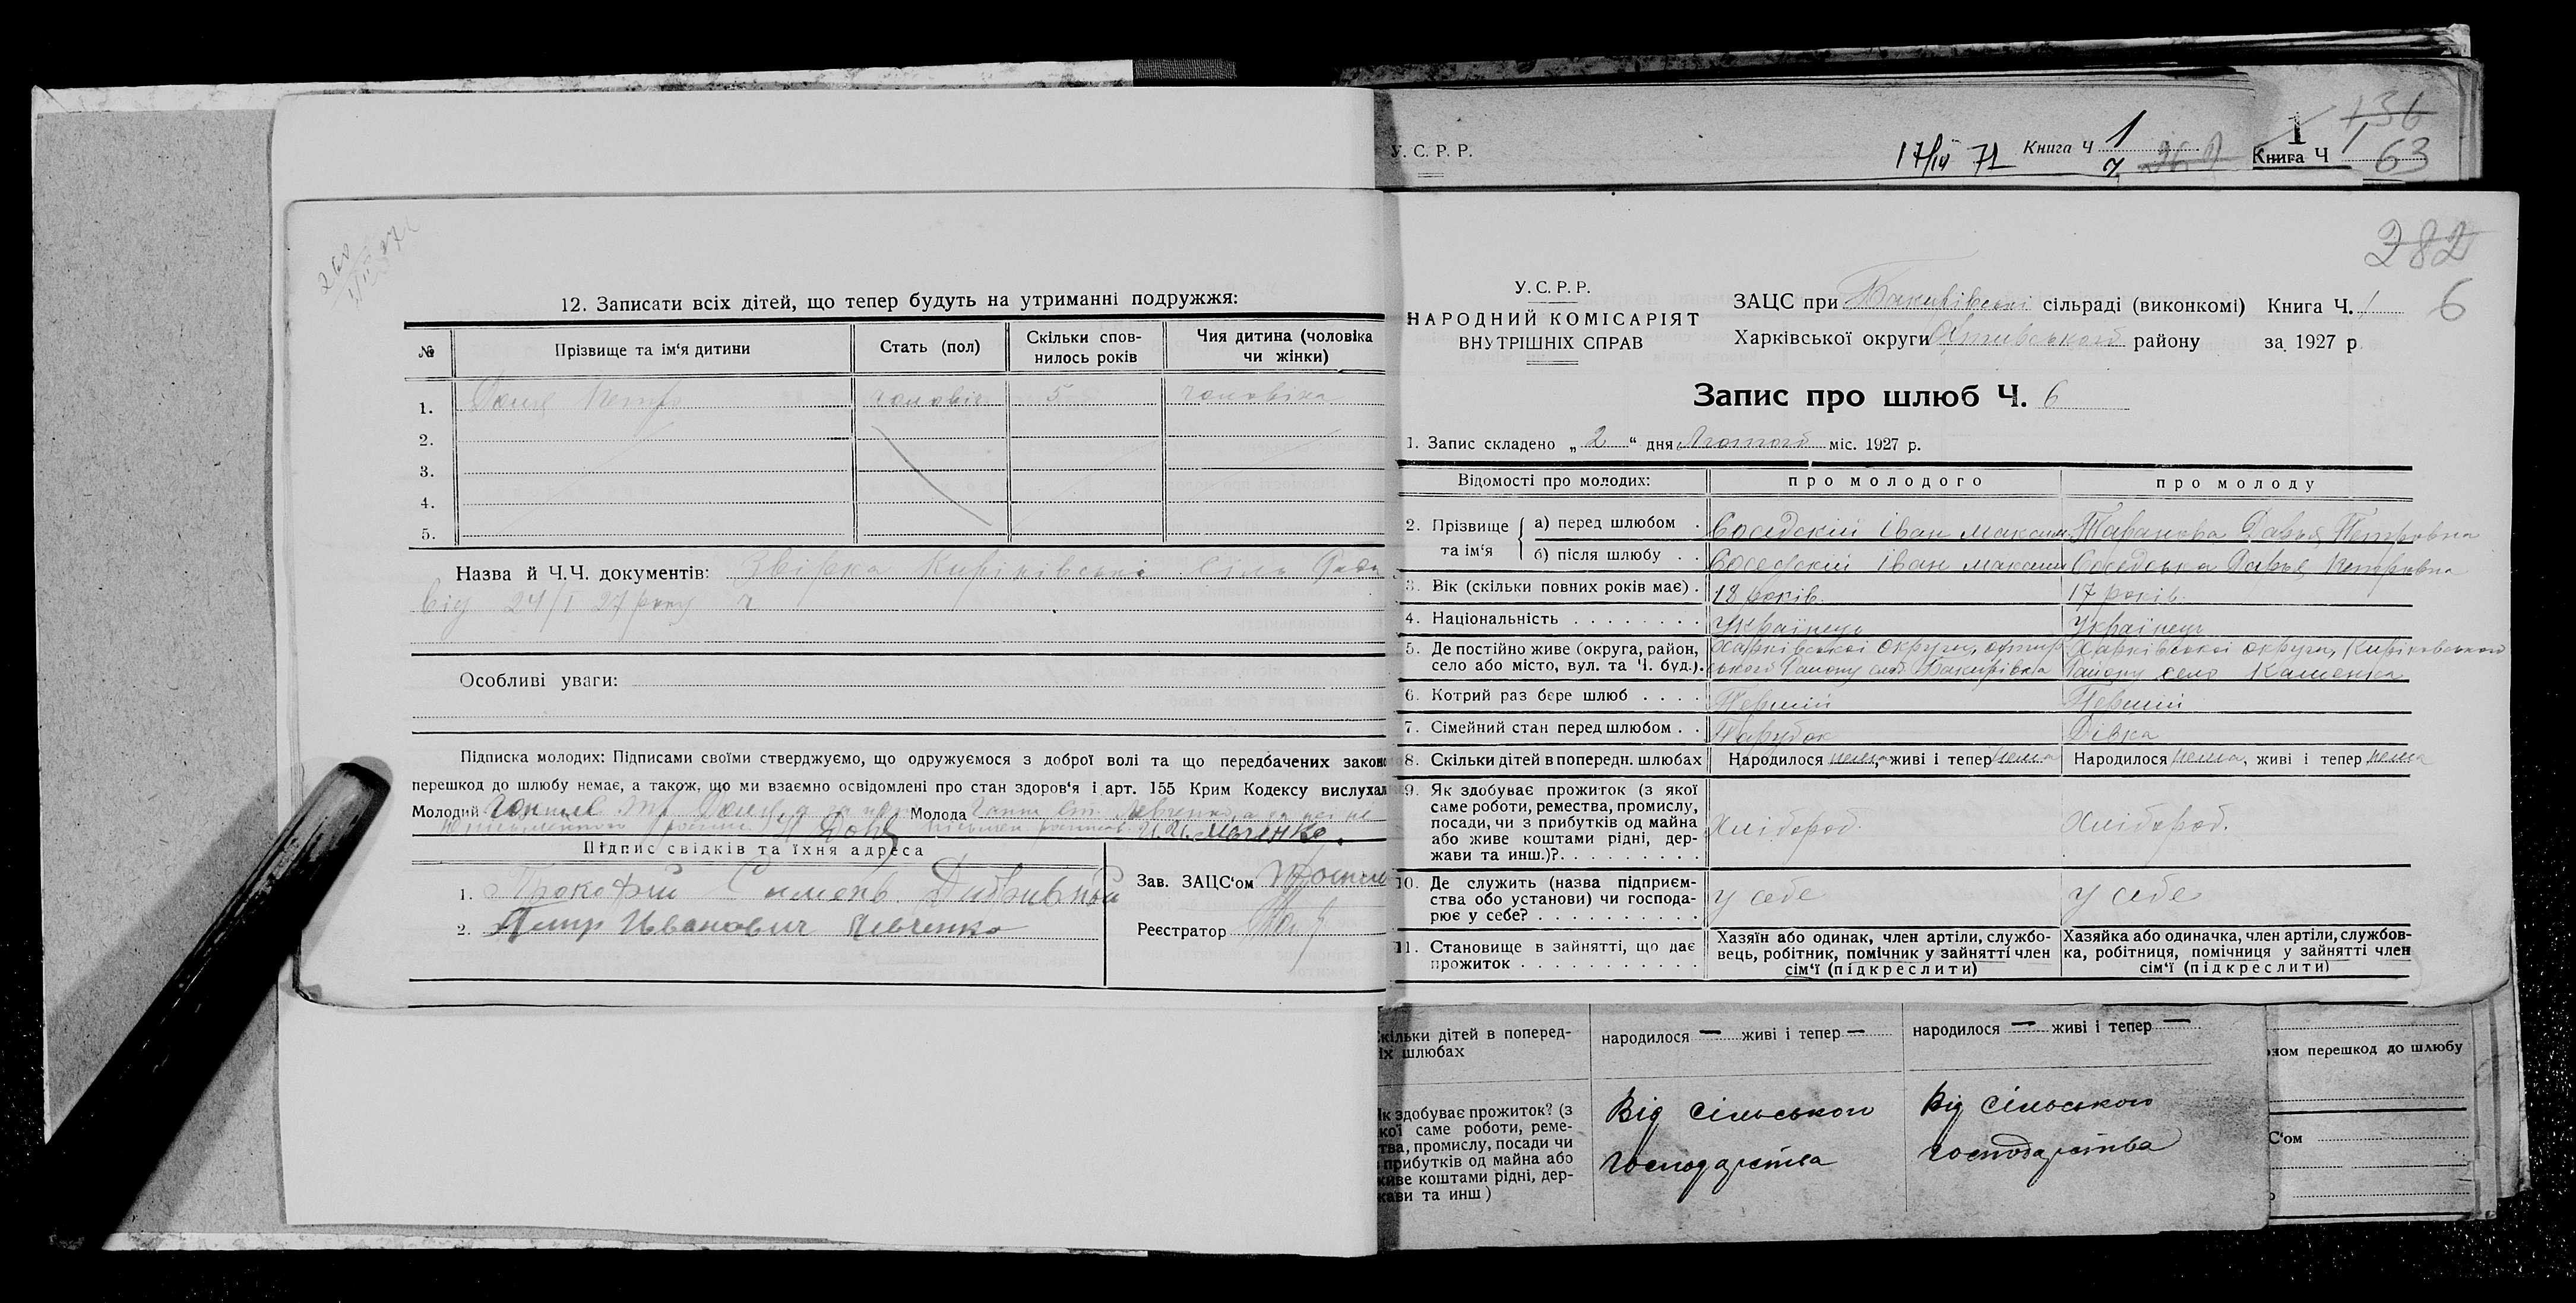 12. Записати всіх дітей, що тепер будуть на утриманні подружжя:
№ Прізвище та ім'я дитини Стать (пол) Скільки спов- нилось років Чия дитина (чоловіка чи жінки)
1. Петро 5 чоловіка
2.
3.
4.
5.
Назва й Ч.Ч. документів: Кириківської Сіль
від 24/I 27 року
Особливі уваги:
Підписка молодих: Підписами своїми стверджуємо, що одружуємося з доброї волі та що передбачених законо
перешкод до шлюбу немає, а також, що ми взаємно освідомлені про стан здоров'я і арт. 155 Крим Кодексу вислухал
Молодий Молода
Підпис свідків та їхня адреса
1. Прокофій
2. Петр Иванович Левченко
Зав. ЗАЦС'ом
Реєстратор
У. С. Р. Р.
17/IV 71 Книга Ч 1
7
1 136
Книга Ч 1 63
282
6
У. С. Р. Р.
НАРОДНИЙ КОМІСАРІЯТ
ВНУТРІШНІХ СПРАВ
ЗАЦС при Бакирівські сільраді (виконкомі) Книга Ч. 1
Харківської округи району за 1927 р
Запис про шлюб Ч. 6
1. Запис складено „ 2 “ дня Лютого міс. 1927 р.
Відомості про молодих: про молодого про молоду
2. Прізвище та ім'я
а) перед шлюбом . Соседскій Іван Максим Таранова Дарья Петровна
б) після шлюбу . . Соседскій Іван Максим Соседська Дарья Петровна
3. Вік (скільки повних років має) . 18 років. 17 років.
4. Національність . . . . . . . . Українець Українець
5. Де постійно живе (округа, район, Харківської округи, Харківської округи, Киріковського
село або місто, вул. та Ч. буд.). ського Району слоб Бакирівка Району село Каменка
6. Котрий раз бере шлюб . . . . Первий Первий
7. Сімейний стан перед шлюбом . . Парубок Дівка
8. Скільки дітей в попередн. шлюбах Народилося нема, живі і тепер нема Народилося нема, живі і тепер нема
9. Як здобуває прожиток (з якої
саме роботи, ремества, промислу,
посади, чи з прибутків од майна
або живе коштами рідні, дер-
жави та инш.)?. . . . . . . . . . Хлібороб. Хлібороб.
10. Де служить (назва підприєм-
ства обо установи) чи господа-
рює у себе? . . . . . . . . . . у себе у себе
11. Становище в зайнятті, що дає
прожиток . . . . . . . . . . . .
Хазяїн або одинак, член артіли, службо-
вець, робітник, помічник у зайнятті член
сім'ї (підкреслити)
Хазяйка або одиначка, член артіли, службов-
ка, робітниця, помічниця у зайнятті член
сім'ї (підкреслити)
кільки дітей в поперед-
іх шлюбах
народилося — живі і тепер — народилося — живі і тепер —
як здобуває прожиток? (з
кої саме роботи, реме-
тва, промислу, посади чи
прибутків од майна або
живе коштами рідні, дер-
жави та инш)
Від сільського
господарства
Від сільського
господарства
ном перешкод до шлюбу
С'ом